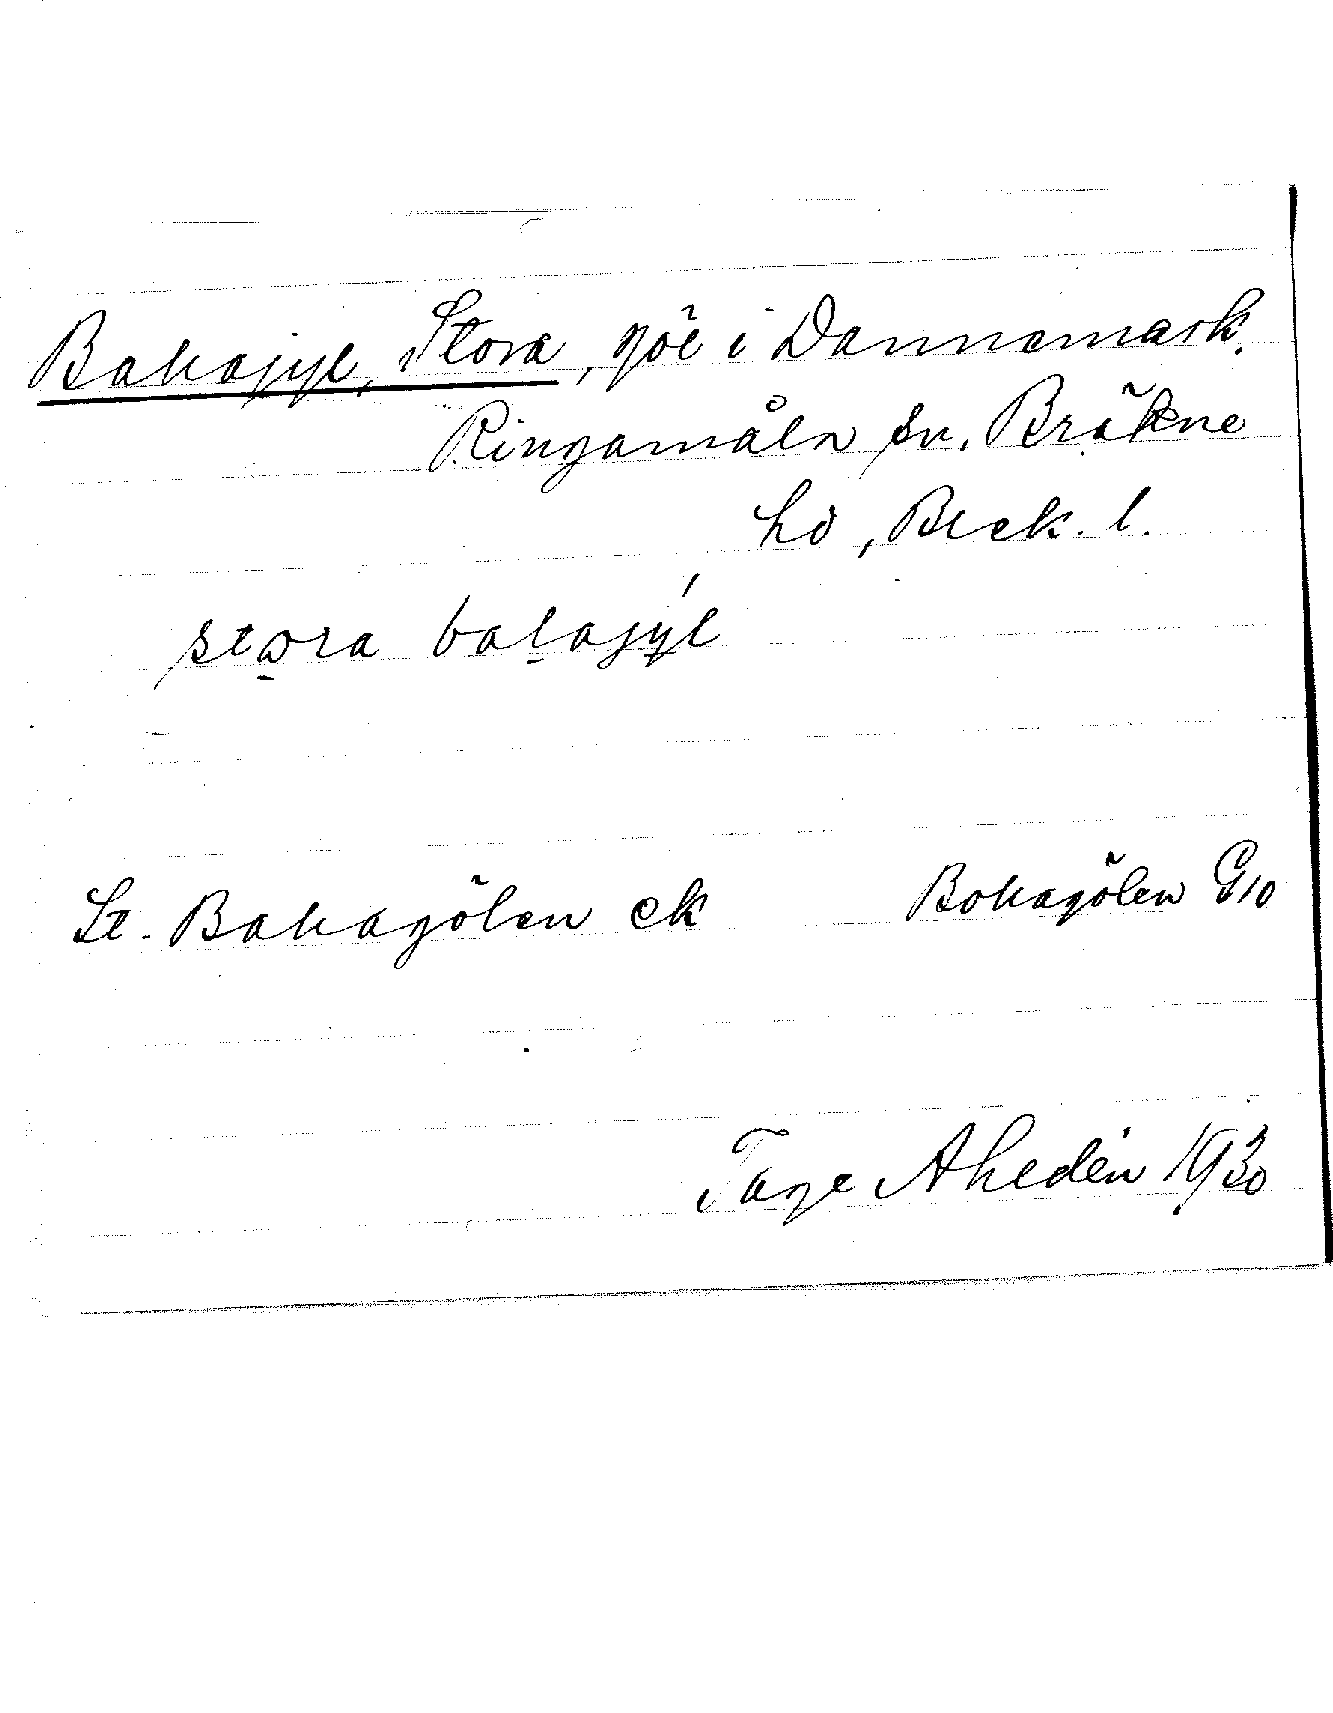 Bakajyl, Stora, göl i Dannemark.
Ringamåln sn. Bräkne
hd, Blek. l.
stora bakajýl
St. Bakagölen ek Bokagölen G10
Tage Ahedén 1930